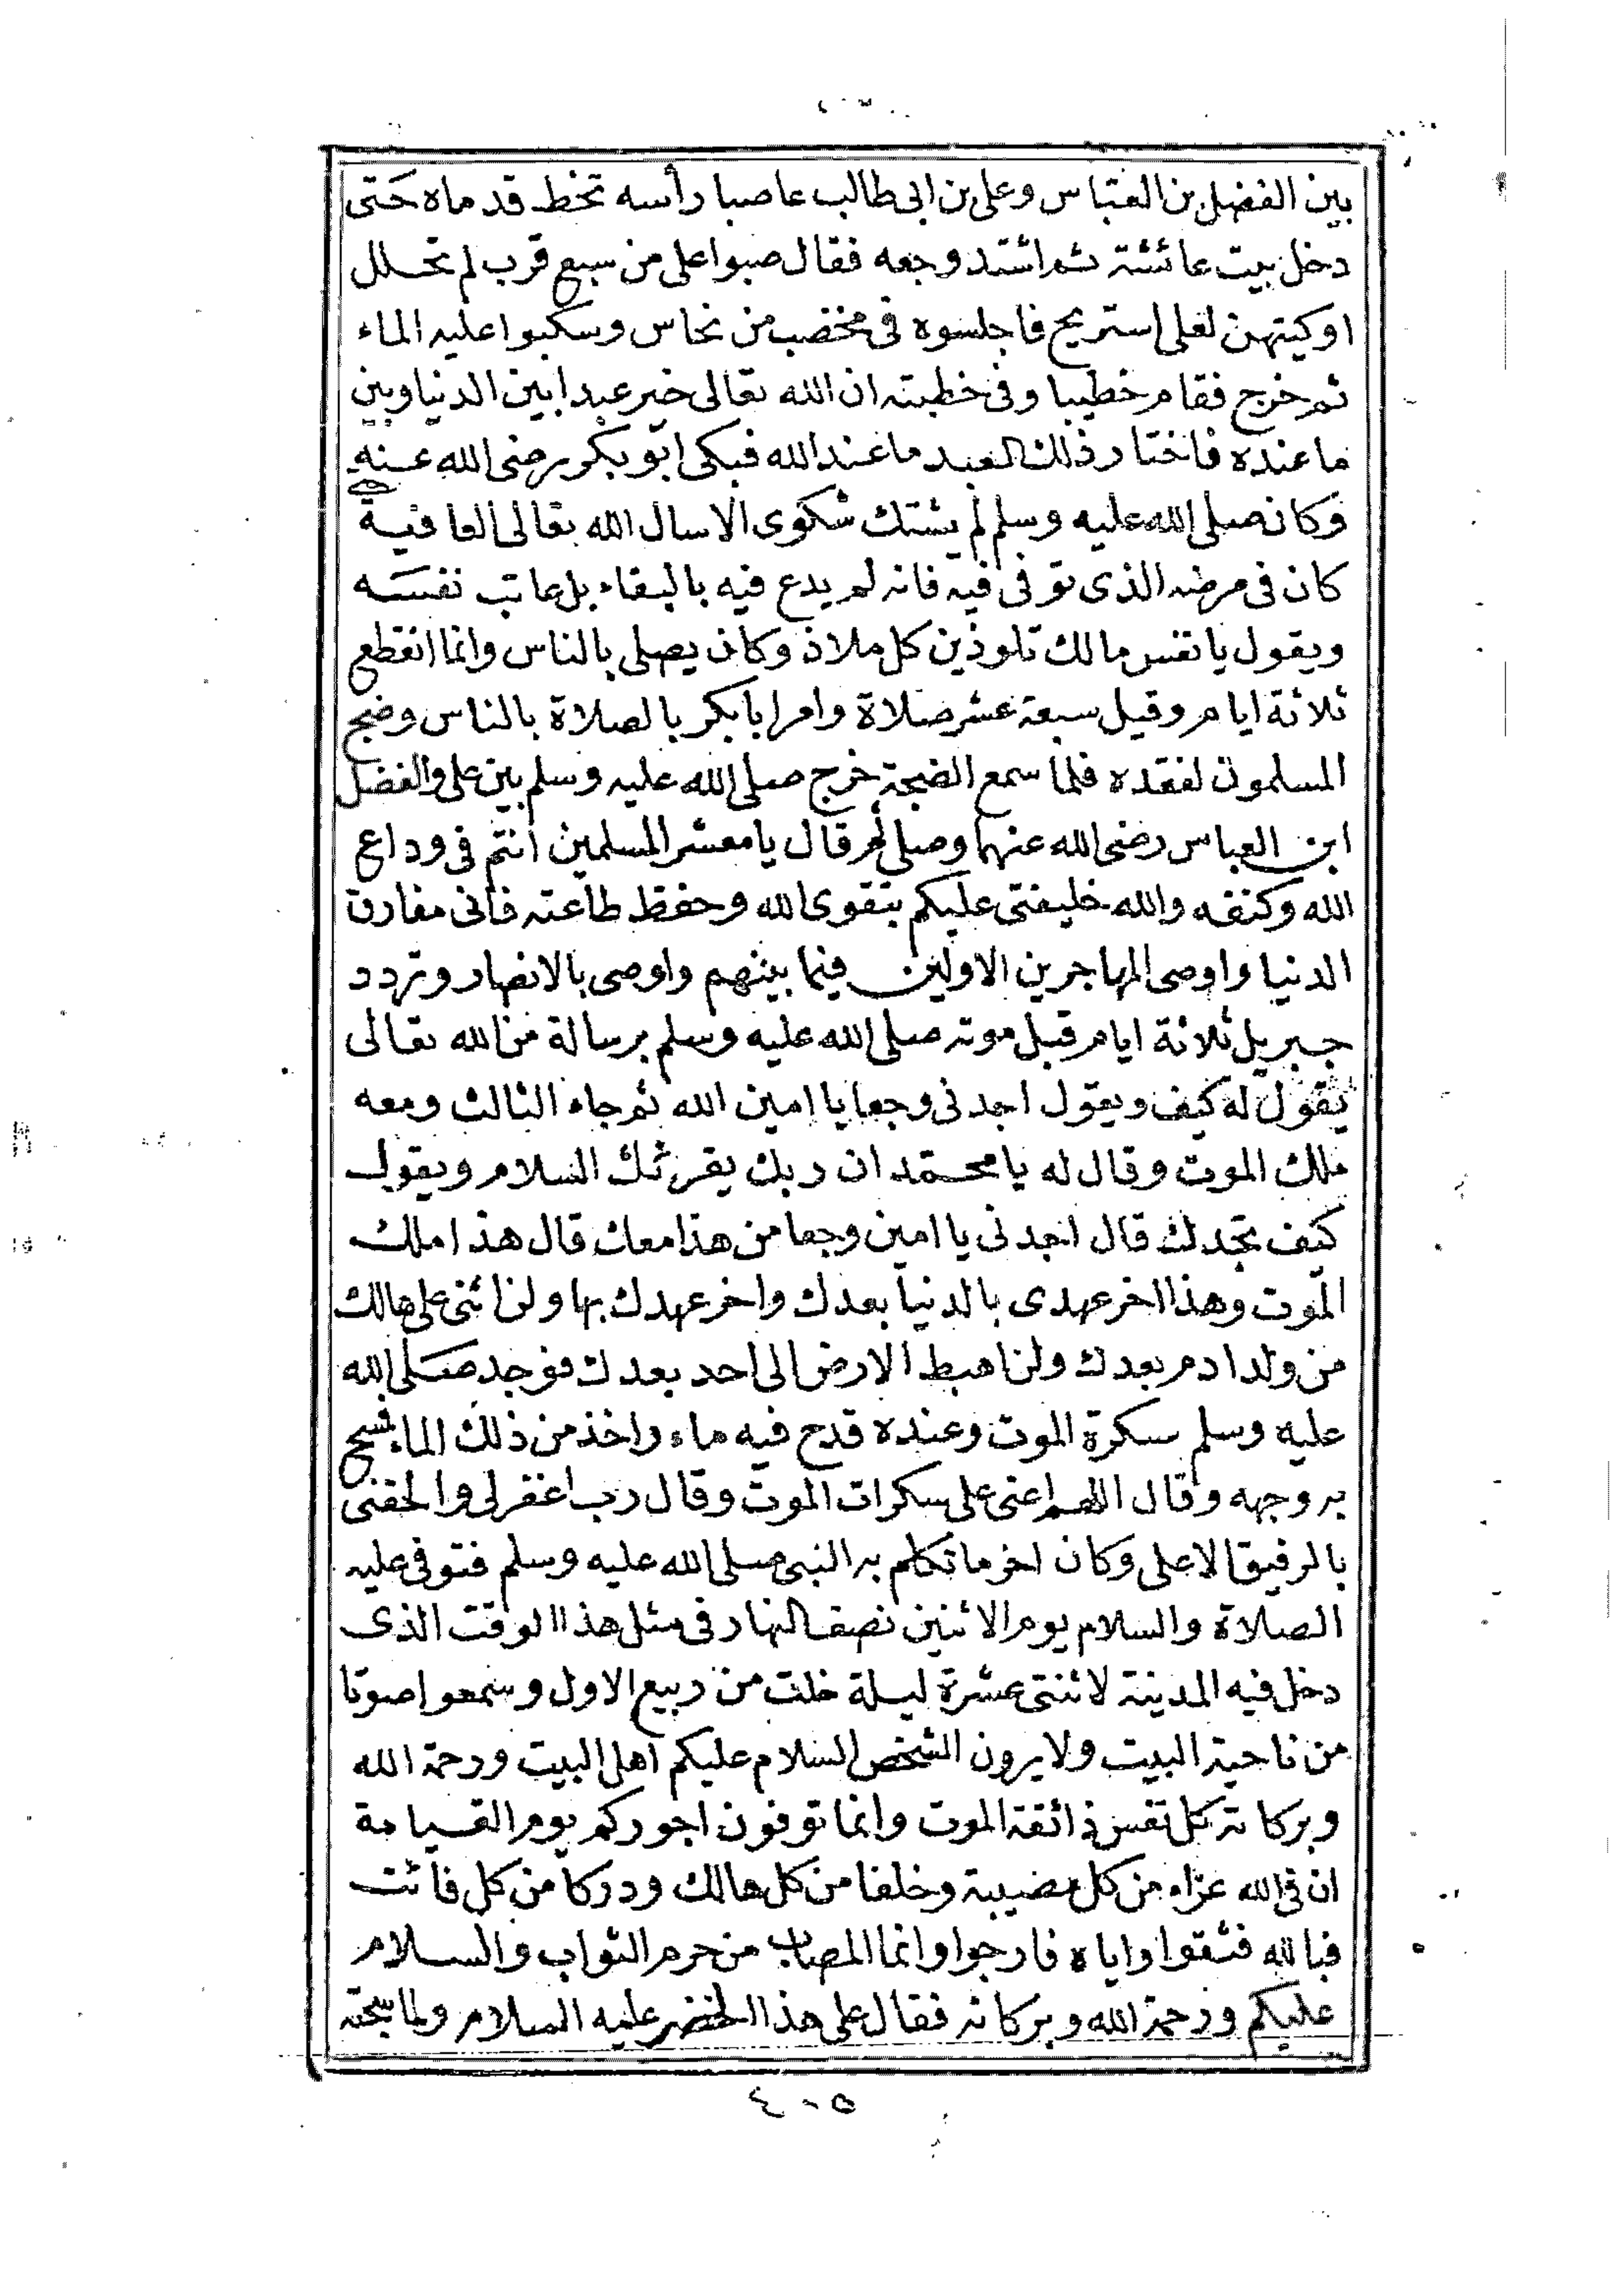 بين الفضل بن العباس وعلى بن ابى طالب عاصبا رأسه تخط قدماه حَتى
دخل بيت عائشة ثم اشتد وجعه فقال صبوا على من سبع قرب لم تحلل
اوكيتهن لعلى استريح فاجلسوه فى مخضب من نحاس وسكبوا عليه الماء
ثم خرج فقام خطيبا وفى خطبته ان الله تعالى خير عبدا بين الدنيا وبين
ما عنده فاختار ذلك العبد ما عند الله فبكى ابو بكر رضى الله عنه
وكان صلى الله عليه وسلم لم يشتك شكوى الا سال الله تعالى العافية
كان فى مرضه الذى توفى فيه فانه لم يدع فيه بالبقاء بل عاتب نفسَه
ويقول يا نفس مالك تلوذين كل ملاذ وكان يصلى بالناس وانما انقطع
ثلاثة ايام وقيل سبعة عشر صلاة وامر ابا بكر بالصلاة بالناس وضج
المسلمون لفقده فلما سمع الضجة خرج صلى الله عليه وسلم بين على والفضل
ابن العباس رضى الله عنهما وصلى ثم قال يا معشر المسلمين انتم فى وداع
الله وكنفه والله خليفتى عليكم بتقوى الله وحفظ طاعته فانى مفارق
الدنيا واوصى المهاجرين الاولين فيما بينهم واوصى بالانصار وتردد
جبريل ثلاثة ايام قبل موته صلى الله عليه وسلم برسالة من الله تعالى
يقول له كيف ويقول اجدنى وجعا يا امين الله ثم جاء الثالث ومعه
ملك الموت وقال له يا محمد ان ربك يقرئك السلام ويقول
كيف تجدك قال اجدنى يا امين وجعا من هذا معك قال هذا ملك
الموت وهذا اخر عهدى بالدنيا بعدك واخر عهدك بها ولن اثنى على هالك
من ولد ادم بعدك ولن اهبط الارض الى احد بعدك فوجد صَلى الله
عليه وسلم سكرة الموت وعنده قدح فيه ماء واخذ من ذلك الماء فمسح
به وجهه وقال اللهم اعنى على سكرات الموت وقال رب اغفر لى والحقنى
بالرفيق الاعلى وكان اخر ما تكلم به النبى صلى الله عليه وسلم فتوفى عليه
الصلاة والسلام يوم الاثنين نصف النهار فى مثل هذا الوقت الذى
دخل فيه المدينة لاثنتى عشرة ليلة خلت من ربيع الاول وسمعوا صوتا
من ناحية البيت ولا يرون الشخص السلام عليكم اهل البيت ورحمة الله
وبركاته كل نفس ذائقة الموت وانما توفون اجوركم يوم القيامة
ان فى الله عزاء من كل مصيبة وخلفا من كل هالك ودركا من كل فائت
فبالله فثقوا واياه فارجوا وانما المصاب من حرم الثواب والسلام
عليكم ورحمة الله وبركاته فقال على هذا الخضر عليه السلام ولما